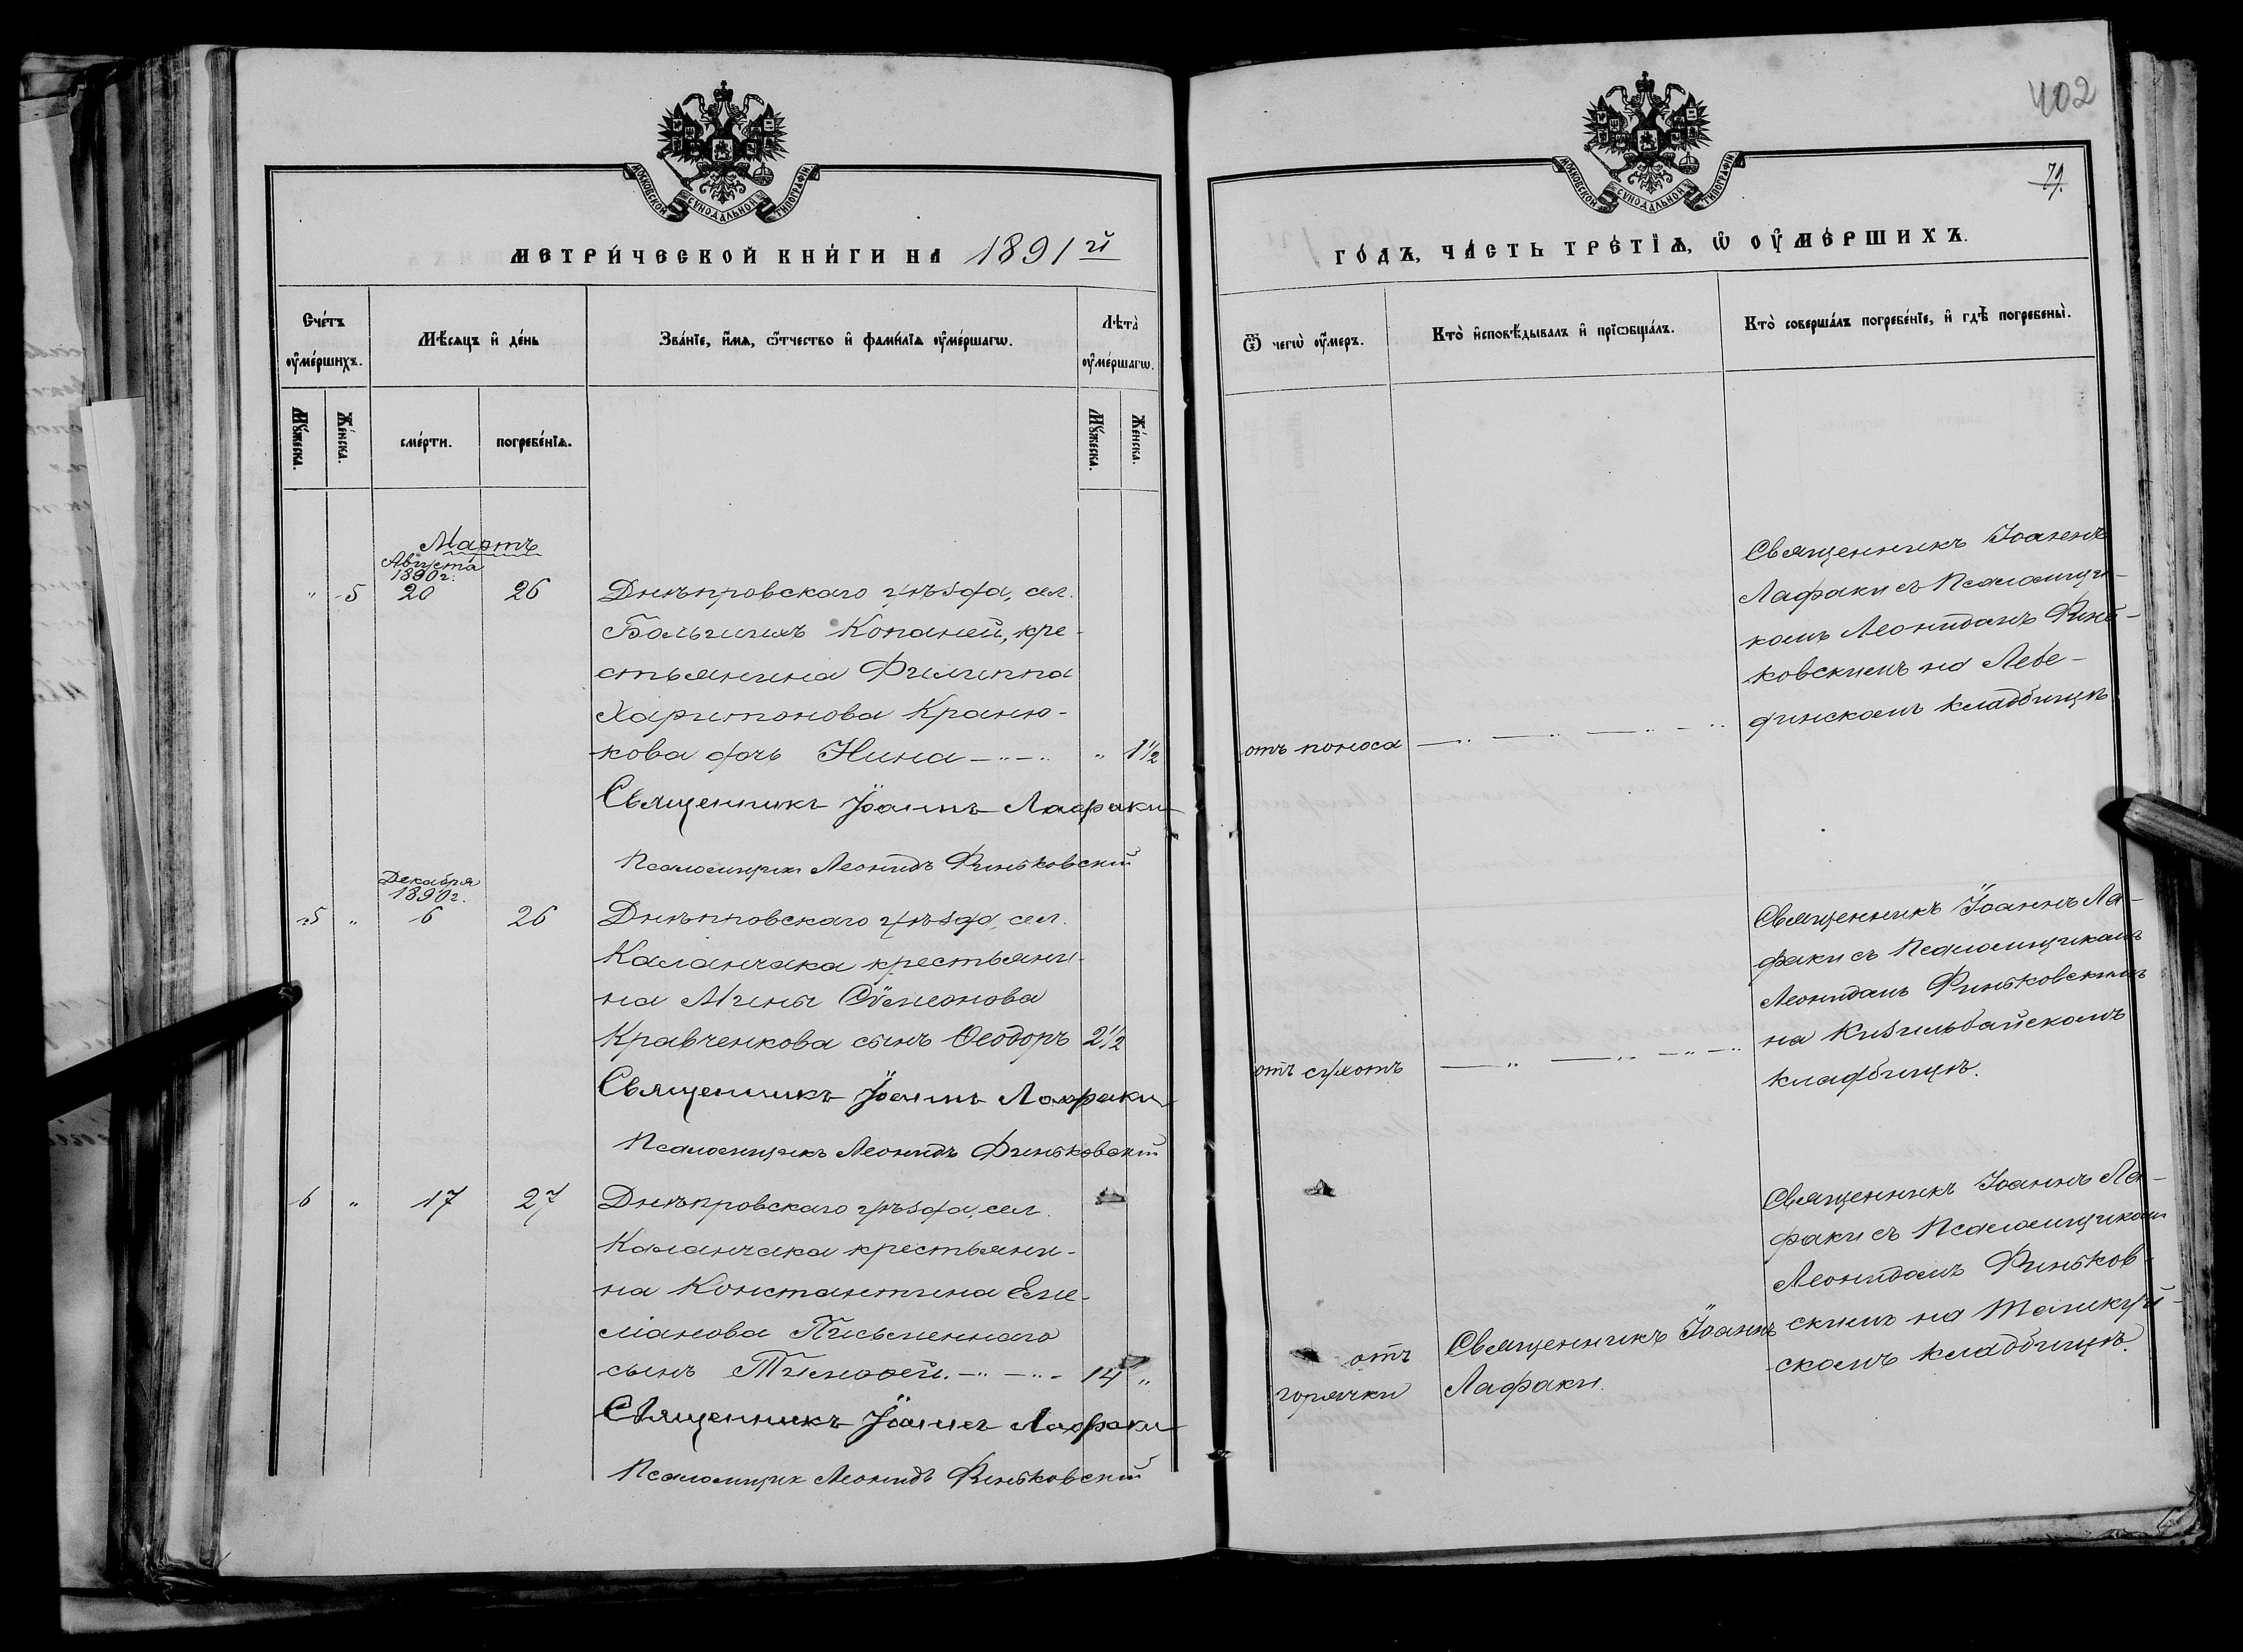 402
79.
МОСКОВСКОЙ СѴНОДАЛЬНОЙ ТИПОГРАФІИ
МОСКОВСКОЙ СѴНОДАЛЬНОЙ ТИПОГРАФІИ
МЕТРИ́ЧЕСКОЙ КНИ́ГИ НА 1891 й
ГО́ДЪ, ЧА́СТЬ ТРЕ́ТІѦ, Ѡ҆ ОУ҆МЕ́РШИХЪ.
Сче́тъ оу҆ме́ршихъ.
Мѣ́сяцъ и҆ де́нь
Зва́нїе, и҆́мѧ, ѻ҆́тчество и҆ фами́лїѧ оу҆ме́ршагѡ.
Лѣта̀ оу҆ме́ршагѡ.
Ѿ чегѡ̀ оу҆́меръ.
Кто̀ и҆сповѣ́дывалъ и҆ прїѡбща́лъ.
Кто̀ соверша́лъ погребе́нїе, и҆ гдѣ̀ погребены̀.
Мꙋ́жеска.
Же́нска.
сме́рти.
погребе́нїѧ.
Мꙋ́жеска.
Же́нска.
Мартъ
Августа
1890 г.
" 5 20 26 Днѣпровскаго уѣзда, сел.
Большихъ Копаней, кре-
стьянина Филиппа
Харитонова Краню-
кова дочь Нина " 1½
Священникъ Іоаннъ Лафаки
Псаломщикъ Леонидъ Финьковскій
отъ поноса
Священникъ Іоаннъ
Лафаки съ Псаломщи-
комъ Леонидомъ Финь-
ковскимъ на Лебе-
динскомъ кладбищѣ.
Декабря
1890 г.
5 " 6 26 Днѣпровскаго уѣзда, сел.
Каланчака крестьяни-
на Мины Сѷмеонова
Кравченкова сынъ Ѳеодоръ 2½
Священникъ Іоаннъ Лафаки
Псаломщикъ Леонидъ Финьковскій
отъ сухотъ
Священникъ Іоаннъ Ла-
факи съ Псаломщикомъ
Леонидомъ Финьковскимъ
на Кизильбайскомъ
кладбищѣ.
6 " 17 27 Днѣпровскаго уѣзда, сел.
Каланчака крестьяни-
на Константина Еме-
ліанова Письменнаго
сынъ Тимоѳей. 14 "
Священникъ Іоаннъ Лафаки
Псаломщикъ Леонидъ Финьковскій
отъ
горячки
Священникъ Іоаннъ
Лафаки.
Священникъ Іоаннъ Ла-
факи съ Псаломщикомъ
Леонидомъ Финьков-
скимъ на
скомъ кладбищѣ.